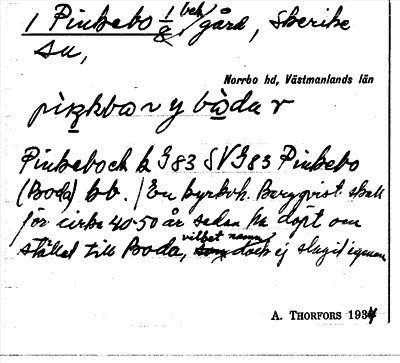 1 Pinkebo 1/8 beb. gård, Skerike
su,
Norrbo hd, Västmanlands län
pìŋkboɿ y bòdaɿ
Pinkeboch k G83 SVG83 Pinkebo
(Boda) bb. / En kyrkoh. Bergqvist skall
för cirka 40-50 år sedan ha döpt om
stället till Boda, vilket namn dock ej slagit igenom
A. THORFORS 1934